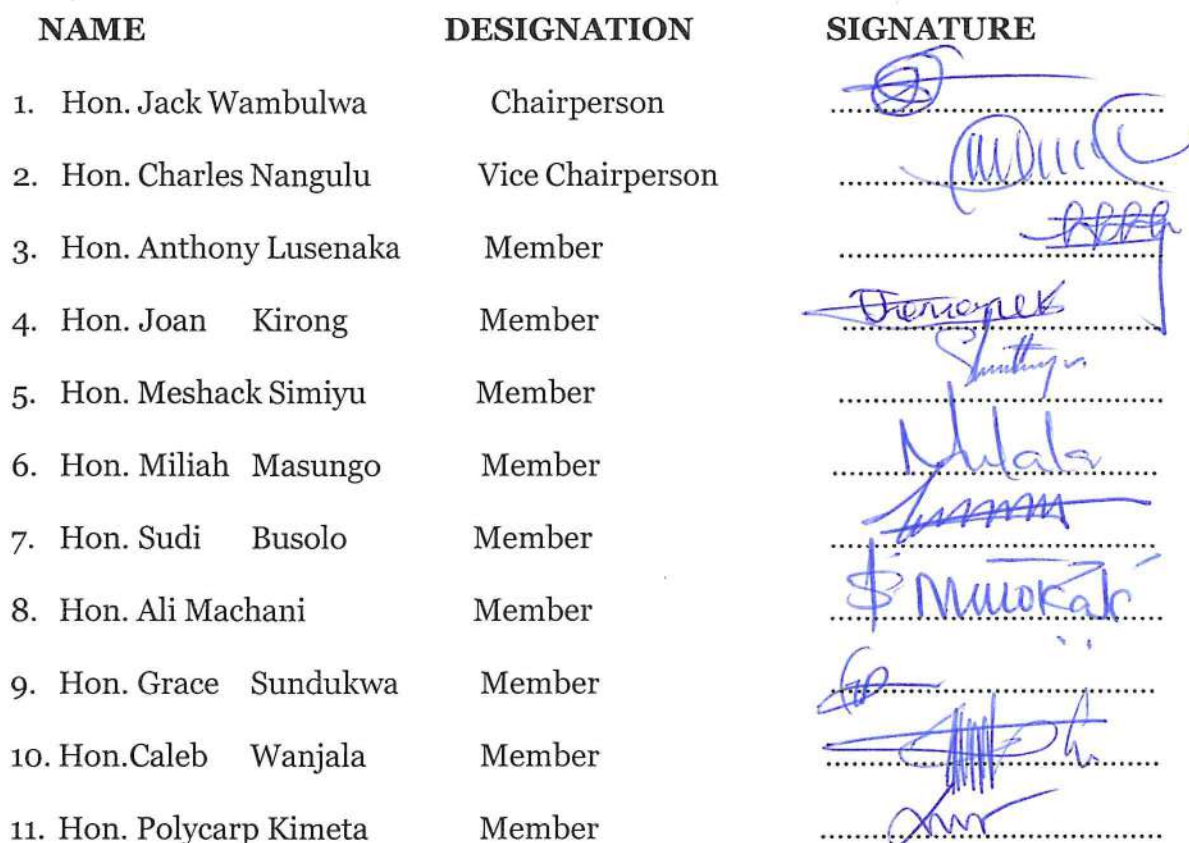 NAME DESIGNATION SIGNATURE
1. Hon. Jack Wambulwa Chairperson
2. Hon. Charles Nangulu Vice Chairperson
3. Hon. Anthony Lusenaka Member
4. Hon. Joan Kirong Member
5. Hon. Meshack Simiyu Member
6. Hon. Miliah Masungo Member
7. Hon. Sudi Busolo Member
8. Hon. Ali Machani Member
9. Hon. Grace Sundukwa Member
10. Hon.Caleb Wanjala Member
11. Hon. Polycarp Kimeta Member